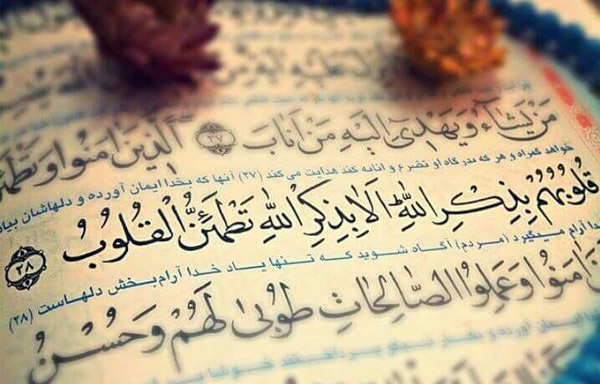 مَن يَشَآءُ وَيَهْدِىٓ إِلَيْهِ مَنْ أَنَابَ ﴿٢٧﴾ الَّذِينَ ءَامَنُوا وَتَطْمَئِنُّ
خواهد گمراه و هر که بدرگاه او تضرع و انابه کند هدایت می کند (۲۷) آنها که بخدا ایمان آورده و دلهاشان بیاد
قُلُوبُهُم بِذِكْرِ اللَّهِ أَلَا بِذِكْرِ اللَّهِ تَطْمَئِنُّ الْقُلُوبُ ﴿٢٨﴾
خدا آرام میگیرد (مردم) آگاه شوید که تنها یاد خدا آرام‌بخش دلهاست (۲۸)
ءَامَنُوا وَعَمِلُوا الصَّالِحَاتِ طُوبَىٰ لَهُمْ وَحُسْنُ